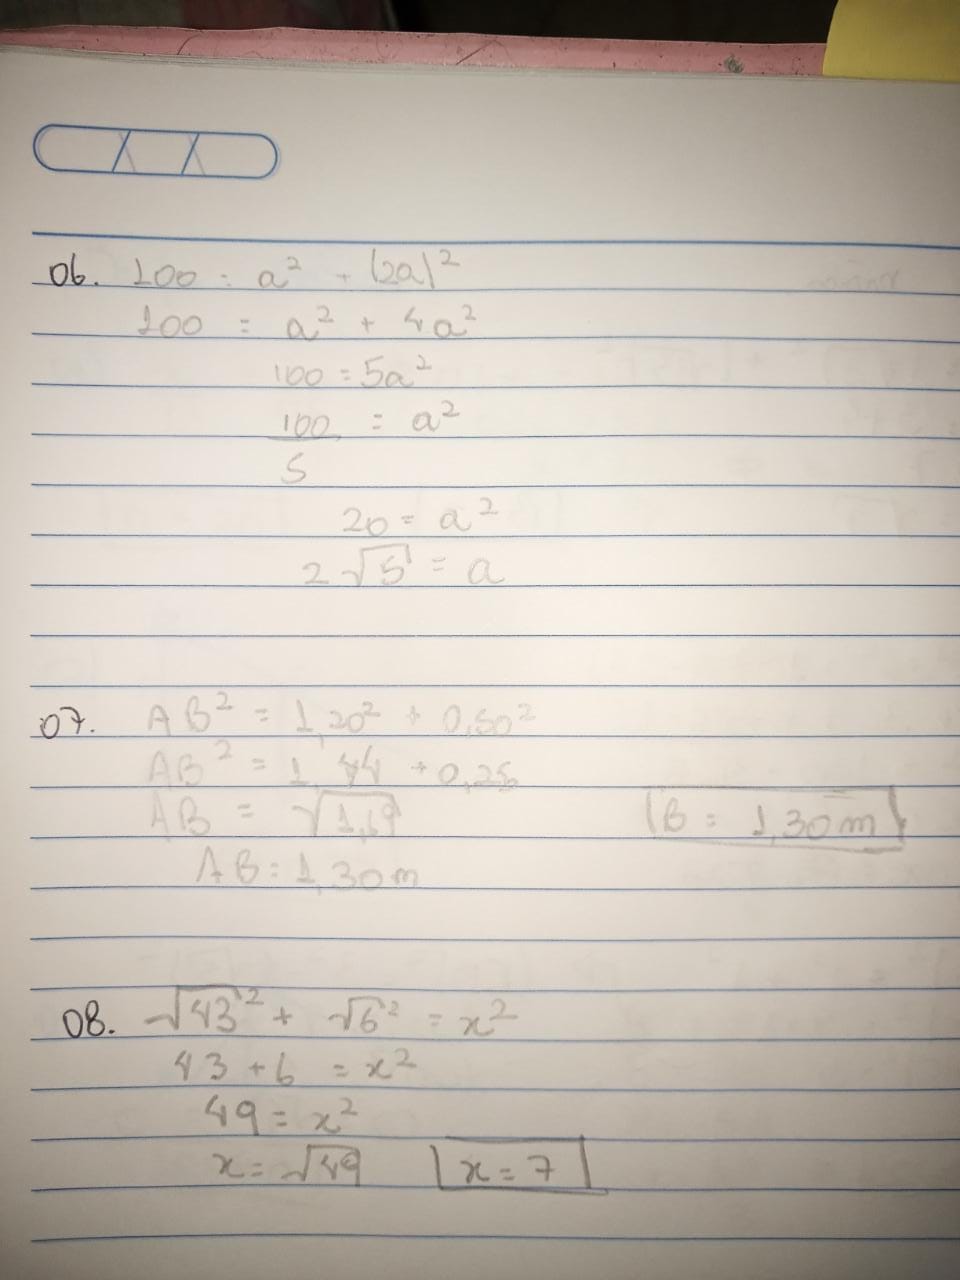 06. 100 = a² + (2a)²
100 = a² + 4a²
100 = 5a²
100 = a²
5
20 = a²
2√5 = a
07. AB² = 1,20² + 0,50²
AB² = 1,44 + 0,25
AB = √1,69
B = 1,30m
AB = 1,30m
08. √43² + √6² = x²
43 + 6 = x²
49 = x²
x = √49 x = 7